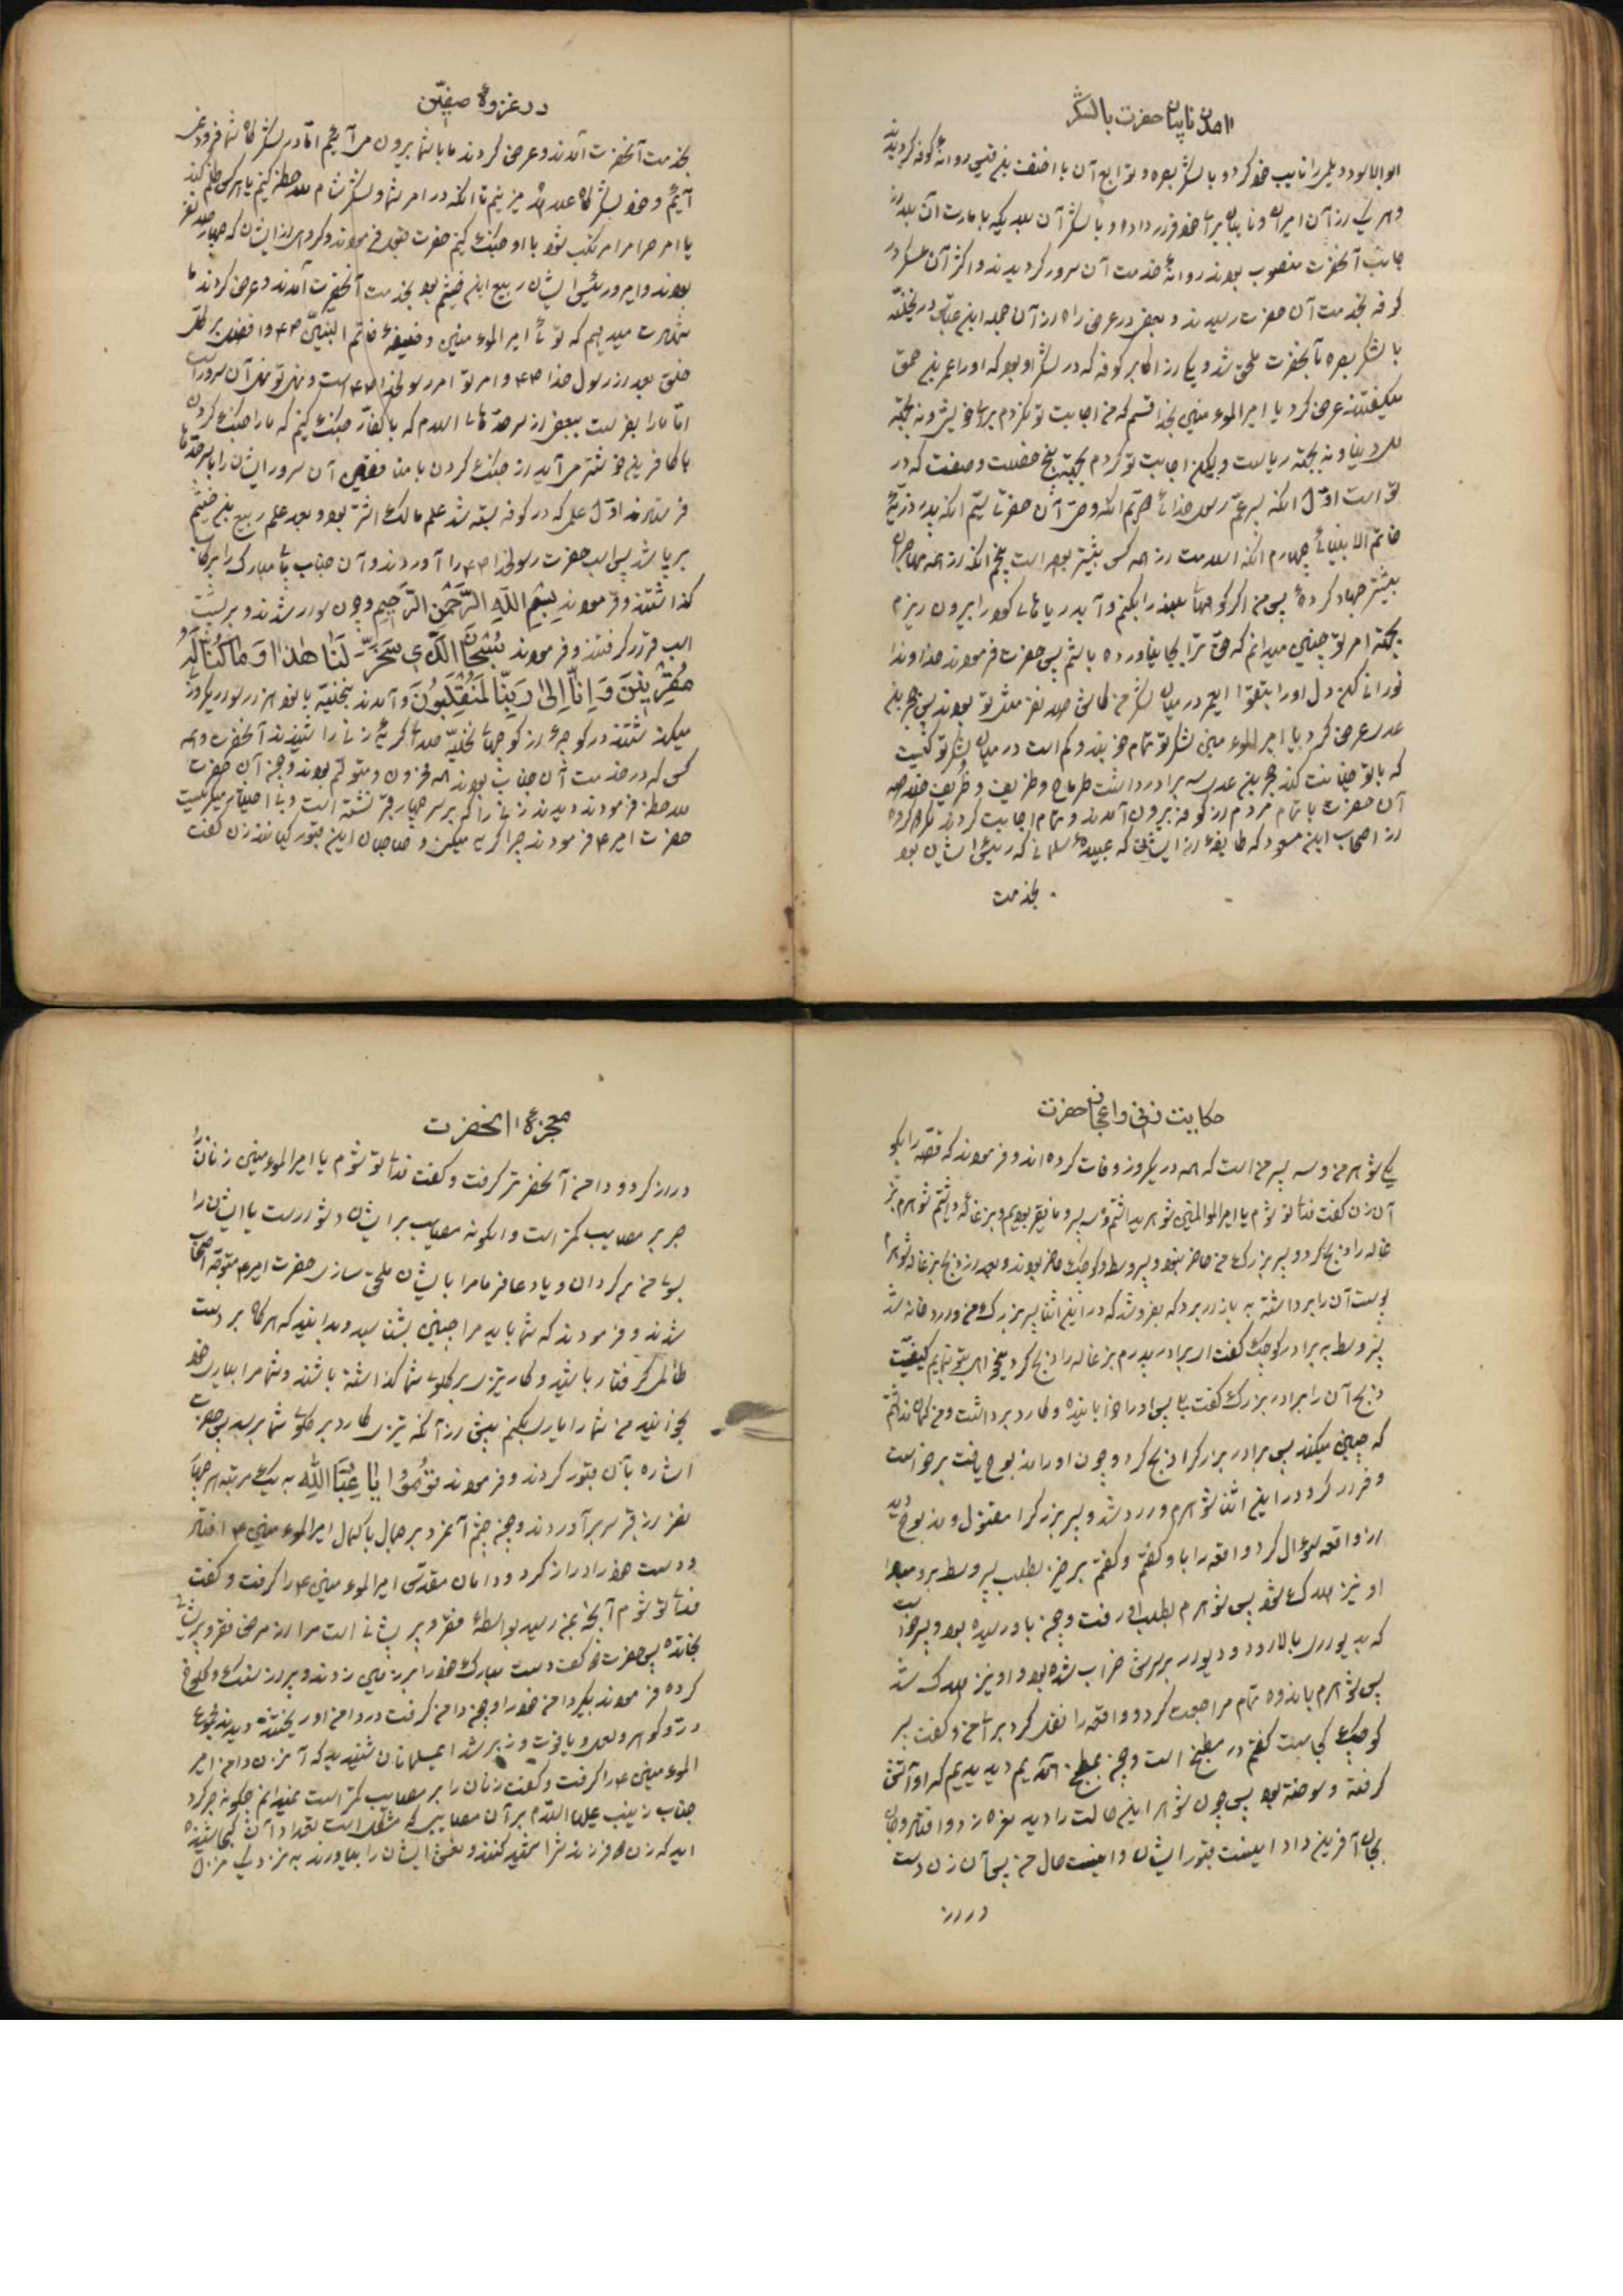 آمدن نایبان حضرت با لشکر
ابوالاسود دیلمی را نایب خود کرد و با لشکر بصره و توابع آن با احنف بن قیس روانهٔ کوفه گردیدند
و هر یک از آن امیران و نایبان برای خود قرار داده و با لشکر آن بلد که بامارت آن بلد از
جانب آنحضرت منصوب بودند روانهٔ خدمت آن سرور گردیدند و اکثر آن عسکر در
کوفه بخدمت آن حضرت رسیدند و بعضی در عرض راه از آن جمله ابن عباس در نخیله
با لشکر بصره بآنحضرت ملحق شد و یکی از اکابر کوفه که در لشکر او بود که او را عمرو بن حمق
میگفتند عرض کرد یا امیرالموءمنین بخدا قسم که من اجابت تو نکردم برای خویشی و نه بجهة
مال دنیا و نه بجهة ریاست ولیکن اجابت تو کردم بجهة پنج خصلت و صفت که در
تو است اوّل آنکه پسر عمّ رسول خدائی دویّم آنکه وصیّ آن حضرتی سیّم آنکه پدر ذریّهٔ
خاتم الانبیائی چهارم آنکه اسلامت از همه کس پیشتر بوده است پنجم آنکه از همه مهاجران
بیشتر جهاد کردهٔ پس من اگر کوههای بلند را بکنم و آب دریاهای را بیرون ریزم
بجهة امر تو چنین میدانم که حق ترا بجا نیاورده باشم پس حضرت فرمودند خداوندا
نورانی کن دل او را بتقوا ایعمرو در میان لشکر من کاش صد نفر مثل تو بودند پس حجر بن
عدی عرض کرد یا امیرالموءمنین لشکر تو تمام خوبند و کم است در میان لشکر تو کسیت
که با تو خیانت کند حجر بن عدی سه برادر داشت
آن حضرت با تمام مردم از کوفه بیرون آمدند و تمام اجابت کردند مگر گروه
از اصحاب ابن مسعود که طایفهٔ از ایشان که عبیدهٔ سلمانی که رئیس ایشان بود
بخدمت
در غزوهٔ صفّین
بخدمت آنحضرت آمدند و عرض کردند ما با شما بیرون می‌آئیم امّا در لشکرگاه شما فرود نمی
آئیم و خود لشکرگاه علیحده میزنیم تا آنکه در امر شما و لشکر شام ملاحظه کنیم یا هر کس ظلم کند
یا امر حرام مرتکب شود با او جنگ کنیم حضرت قبول فرمودند و گروهی از ایشان که چهار صد نفر
بودند و امیر و رئیس ایشان ربیع ابن خثیم بود بخدمت آنحضرت آمدند و عرض کردند ما
شهادت میدهیم که توئی امیرالموءمنین و خلیفهٔ خاتم النبیّین ص و افضل بر کلّ
خلق بعد از رسول خدا ص و امر تو امر رسولخدا ص است و نهی تو نهی آن سرور است
امّا ما را بفرست ببعضی از سرحدّهای اسلام که با کفّار جنگ کنیم که ما را جنگ کردن
با کافرین خوشتر می‌آید از جنگ کردن با منافقین آن سرور ایشان را با سرحدّها
فرستادند اوّل علمی که در کوفه بسته شد علم مالک اشتر بود و بعد علم ربیع بن خثیم
برپا شد پس اسب حضرت رسولخدا ص را آوردند و آن جناب پای مبارک را برکاب
گذاشتند و فرمودند بِسْمِ اللّهِ الرَّحْمٰنِ الرَّحِیمِ و چون سوار شدند و بر پشت
اسب قرار گرفتند و فرمودند سُبْحَانَ الَّذِی سَخَّرَ لَنَا هٰذَا وَمَا كُنَّا لَهُ
مُقْرِنِینَ وَ اِنَّا اِلیٰ رَبِّنَا لَمُنْقَلِبُونَ و آمدند بنخیله با نود هزار سوار یک روز
میگذشتند در کوچهٔ از کوچهای نخیله صدای گریهٔ زنی را شنیدند آنحضرت و همه
کس که در خدمت آن جناب بودند همه محزون و متوقّف بودند و چون آن حضرت
ملاحظه فرمودند دیدند زنی را که بر سر چهار قبر نشسته است و بی اختیار میگریست
حضرت امیر ع فرمودند چرا گریه میکنی و صاحبان این قبور کیانند زن گفت
حکایت زنی و اعجاز حضرت
یکی شوهر من و سه پسر من است که همه در یک روز وفات کرده‌اند و فرمودند که قصّه را بگو
آن زن گفت فدای تو شوم یا امیرالموالمنین شوهری داشتم و سه پسر و ما فقیر بودیم و بزغالهٔ داشتم شوهرم بز
غاله را ذبح کرد و پسر بزرگ من حاضر نبود و پسر وسط و کوچک حاضر بودند و بعد از ذبح بزغاله شوهرم
پوست آن را برداشته به بازار برد که بفروشد که در این اثنا پسر بزرگ من وارد خانه شد
پسر وسط به برادر کوچک گفت ای برادر پدرم بزغاله را ذبح کرد میخواهی بتو بنمایم کیفیّت
ذبح آن را برادر بزرگ گفت بلی پس او را خوابانیده و کارد برداشت و من گمان نداشتم
که چنین میکند پس برادر بزرگرا ذبح کرد و چون او را مذبوح یافت برخواست
و فرار کرد در این اثنا شوهرم وارد شد و پسر بزرگرا مقتول و مذبوح دید
از واقعه سؤال کرد واقعه را باو گفتم و گفتم برخیز بطلب پسر وسط برو مبادا
او نیز هلاک شود پس شوهرم بطلب او رفت و چون باو رسیده بود و پسر خواست
که به دیواری بالا رود و دیوار بر سرش خراب شده بود و او نیز هلاک شد
پس شوهرم باندوه تمام مراجعت کرد و واقعه را نقل کرد برای من و گفت پسر
کوچک کجاست گفتم در مطبخ است و چون بمطبخ آمدیم دیدیم که او آتش
گرفته و سوخته بود پس چون شوهر این حالت را دید نعره زد و افتاد و جان
بجان آفرین داد اینست قبور ایشان و اینست حال من پس آن زن دست
دراز
معجزهٔ آنحضرت
دراز کرد و دامن آنحضرت گرفت و گفت فدای تو شوم یا امیرالموءمنین زنان را
صبر بر مصایب کمتر است و اینگونه مصایب بر ایشان دشوار است یا ایشان را
بسوی من برگردان و یا دعا فرما مرا بایشان ملحق سازی حضرت امیر ع متوجّه اصحاب
شدند و فرمودند که شما باید مرا چنین بشناسید و بدانید که هرگاه بر دست
ظالمی گرفتار باشید و کارد تیزی بر گلوی شما گذاشته باشند و شما مرا بیاری خود
بخوانید من شما را یاری بکنم پیش از آنکه تیزی کارد بر گلوی شما برسد پس حضرت
اشاره بآن قبور کردند و فرمودند قُومُوا یَا عِبَادَ اللهِ به یک مرتبه هر چهار
نفر از قبر سر برآوردند و چون چشم آنمرد بر جمال با کمال امیرالموءمنین ع افتاد
دست خود را دراز کرد و دامان مقدّس امیرالموءمنین ع را گرفت و گفت
فدای تو شوم آنچه بمن رسید بواسطهٔ فقر و پریشانی است مرا از مرض فقر و پریشانی
نجات ده پس حضرت دو کف دست مبارک خود را بر زمین زدند و پر از سنگ و کلوخ
کرده فرمودند بگیر دامن خود را و چون دامن گرفت در دامن او ریختند دیدند مجموع
درّ و گوهر و لعل و یاقوت و زبرجد شد ایمسلمانان شنیدید که آنزن دامن امیر
الموءمنین ع را گرفت و گفت زنان را صبر بر مصایب کمتر است نمیدانم چگونه صبر کرد
جناب زینب علیها السّلام بر آن مصایبی که مشکل است تعداد آن کجا شنیده
اید که زن که فرزندش را شهید کنند و نعش ایشان را بیاورند به نزدیکی منزل